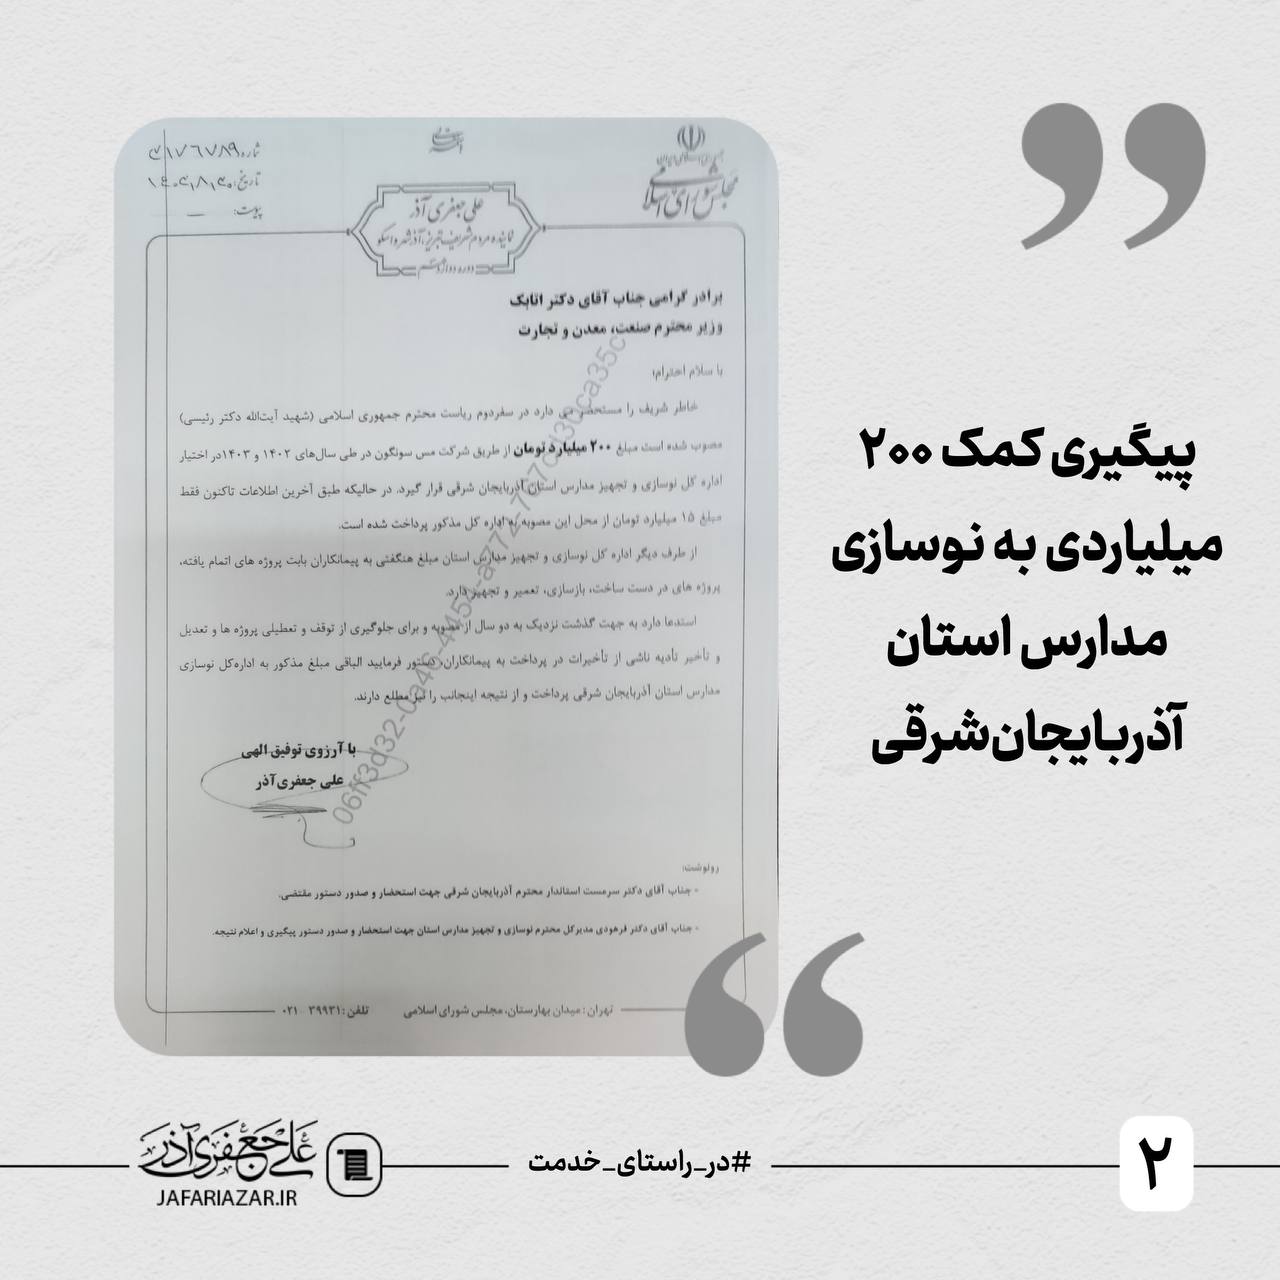 پیگیری کمک ۲۰۰
میلیاردی به نوسازی
مدارس استان
آذربایجان‌شرقی
جمهوری اسلامی ایران
مجلس شورای اسلامی
علی جعفری آذر
نماینده مردم شریف تبریز، آذرشهر و اسکو
دوره دوازدهم
شماره:
تاریخ:
پیوست: —
برادر گرامی جناب آقای دکتر اتابک
وزیر محترم صنعت، معدن و تجارت
با سلام احترام؛
خاطر شریف را مستحضر می دارد در سفردوم ریاست محترم جمهوری اسلامی (شهید آیت‌الله دکتر رئیسی)
مصوب شده است مبلغ ۲۰۰ میلیارد تومان از طریق شرکت مس سونگون در طی سال‌های ۱۴۰۲ و ۱۴۰۳در اختیار
اداره کل نوسازی و تجهیز مدارس استان آذربایجان شرقی قرار گیرد. در حالیکه طبق آخرین اطلاعات تاکنون فقط
مبلغ ۱۵ میلیارد تومان از محل این مصوبه به اداره کل مذکور پرداخت شده است.
از طرف دیگر اداره کل نوسازی و تجهیز مدارس استان مبلغ هنگفتی به پیمانکاران بابت پروژه های اتمام یافته،
پروژه های در دست ساخت، بازسازی، تعمیر و تجهیز دارد.
استدعا دارد به جهت گذشت نزدیک به دو سال از مصوبه و برای جلوگیری از توقف و تعطیلی پروژه ها و تعدیل
و تأخیر تأدیه ناشی از تأخیرات در پرداخت به پیمانکاران، دستور فرمایید الباقی مبلغ مذکور به اداره‌کل نوسازی
مدارس استان آذربایجان شرقی پرداخت و از نتیجه اینجانب را نیز مطلع دارند.
با آرزوی توفیق الهی
علی جعفری‌آذر
رونوشت:
- جناب آقای دکتر سرمست استاندار محترم آذربایجان شرقی جهت استحضار و صدور دستور مقتضی.
- جناب آقای دکتر فرهودی مدیرکل محترم نوسازی و تجهیز مدارس استان جهت استحضار و صدور دستور پیگیری و اعلام نتیجه.
تهران : میدان بهارستان، مجلس شورای اسلامی تلفن : ۳۹۹۳۱ - ۰۲۱
علی جعفری آذر
JAFARIAZAR.IR
#در_راستای_خدمت
۲